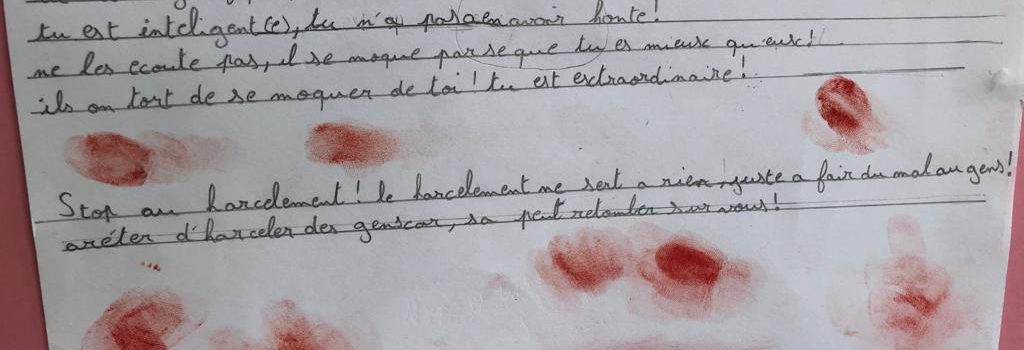 tu est inteligent(e), tu n'a pas en avoir honte!
ne les ecoute pas, il se moque parseque tu es mieux qu'eux!
ils on tort de se moquer de toi! tu est extraordinaire!
Stop au harcelement! le harcelement ne sert a rien, juste a fair du mal au gens!
aréter d'harceler des gens car, sa peut retomber sur vous!